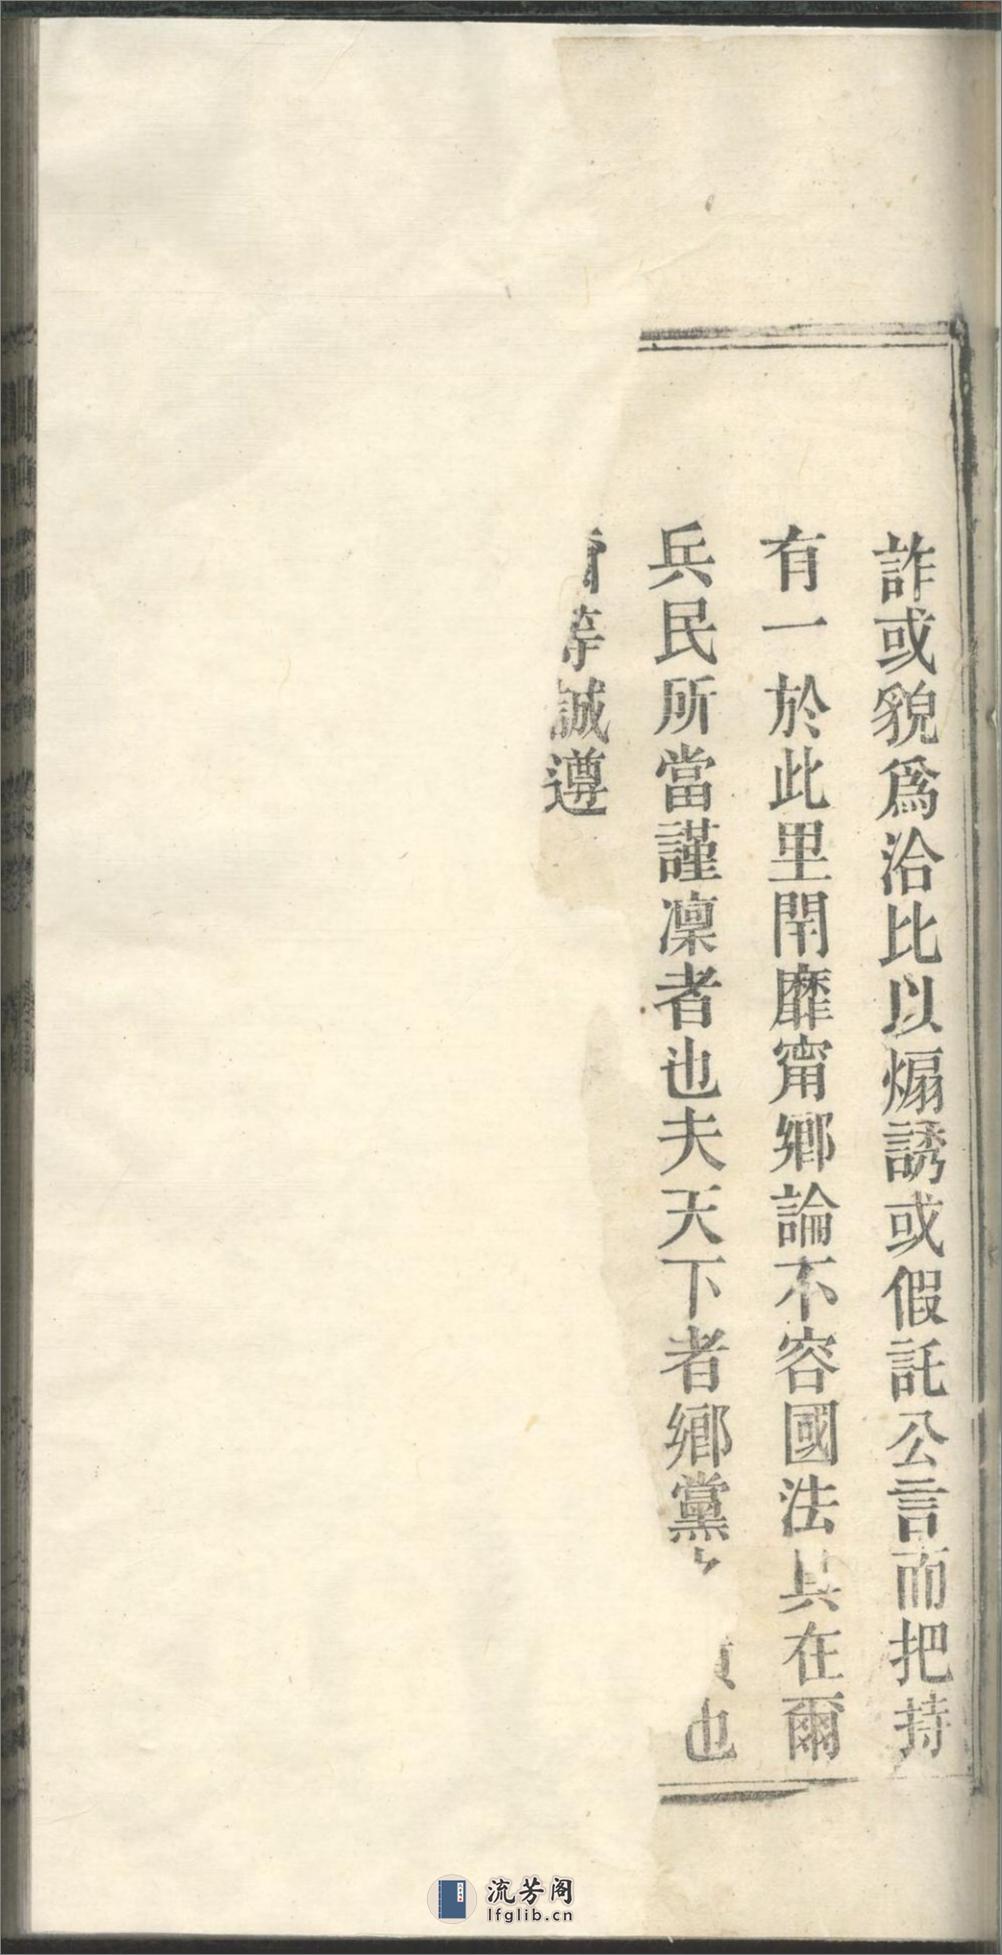 詐或貌爲洽比以煽誘或假託公言而把持
有一於此里閈靡甯鄉論不容國法具在爾
兵民所當謹凜者也夫天下者鄉黨也
等誠遵
流芳阁
lfglib.cn